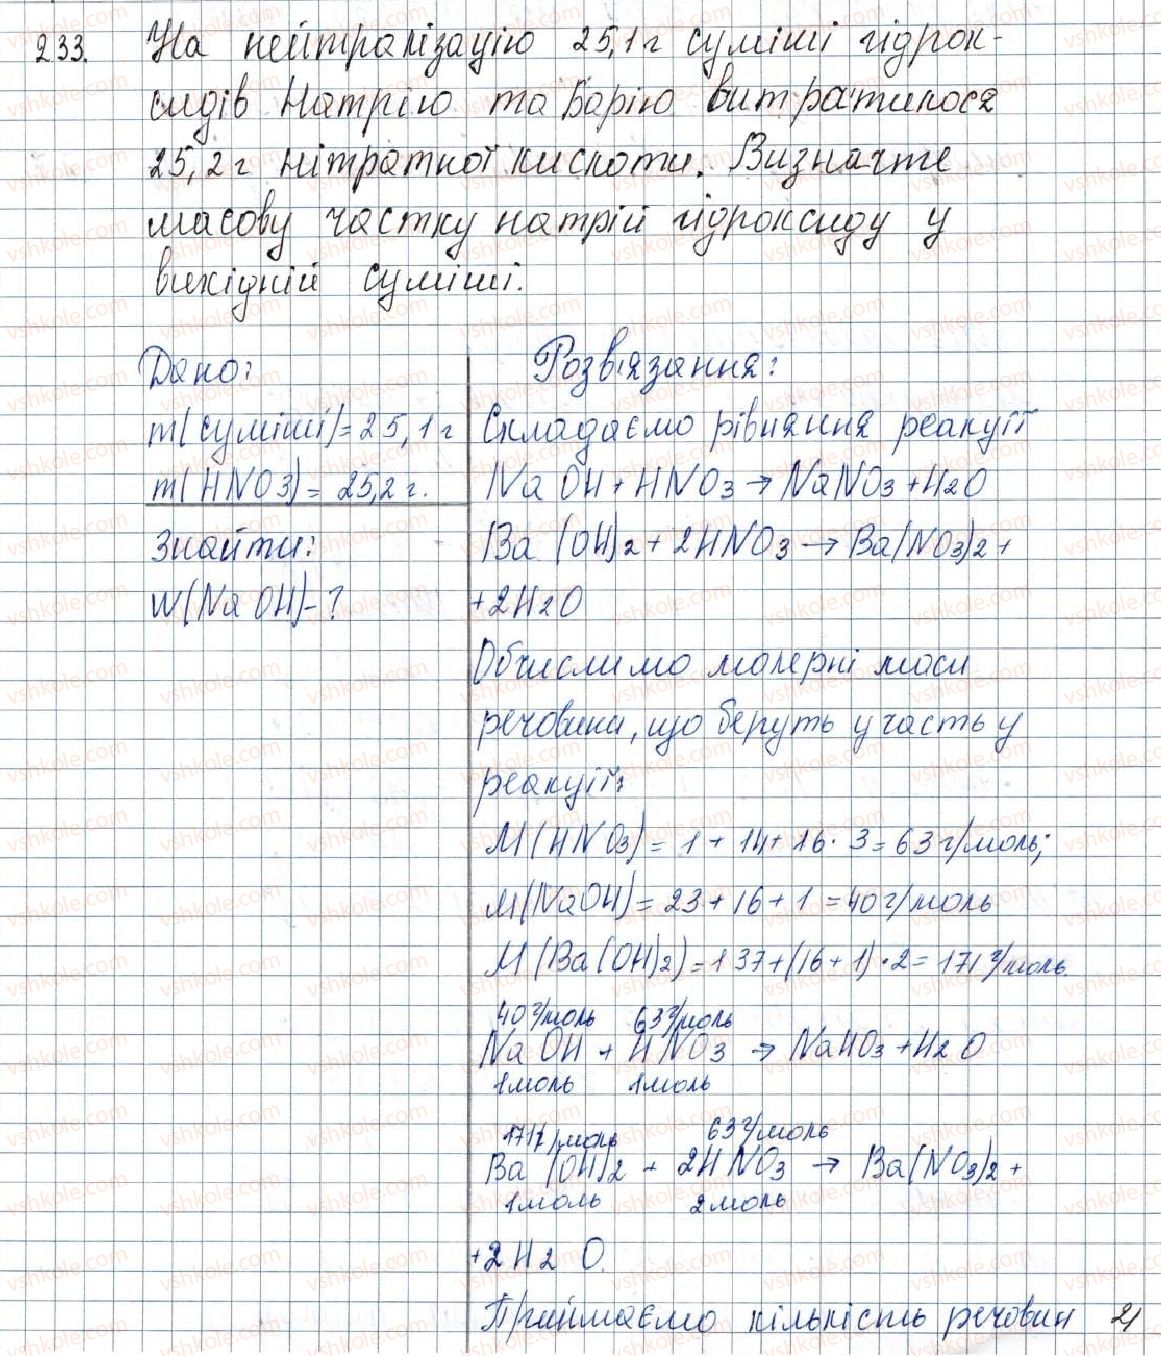 233. На нейтралізацію 25,1 г суміші гідрок-
сидів Натрію та Барію витратилося
25,2 г нітратної кислоти. Визначте
масову частку натрій гідроксиду у
вихідній суміші.
Дано:
m(суміші)=25,1 г
m(HNO3)= 25,2 г.
Знайти:
w(NaOH)-?
Розв'язання:
Складаємо рівняння реакції
NaOH+HNO3→NaNO3+H2O
Ba(OH)2+2HNO3→Ba(NO3)2+
+2H2O
Обчислимо молярні маси
речовини, що беруть участь у
реакції:
M(HNO3)=1+14+16·3=63 г/моль;
M(NaOH)=23+16+1=40 г/моль
M(Ba(OH)2)=137+(16+1)·2=171 г/моль.
40 г/моль 63 г/моль
NaOH + HNO3 → NaHO3+H2O
1моль 1моль
171 г/моль 63 г/моль
Ba(OH)2 + 2HNO3 → Ba(NO3)2+
1моль 2моль
+2H2O.
Приймаємо кількість речовин 21
vshkole.com